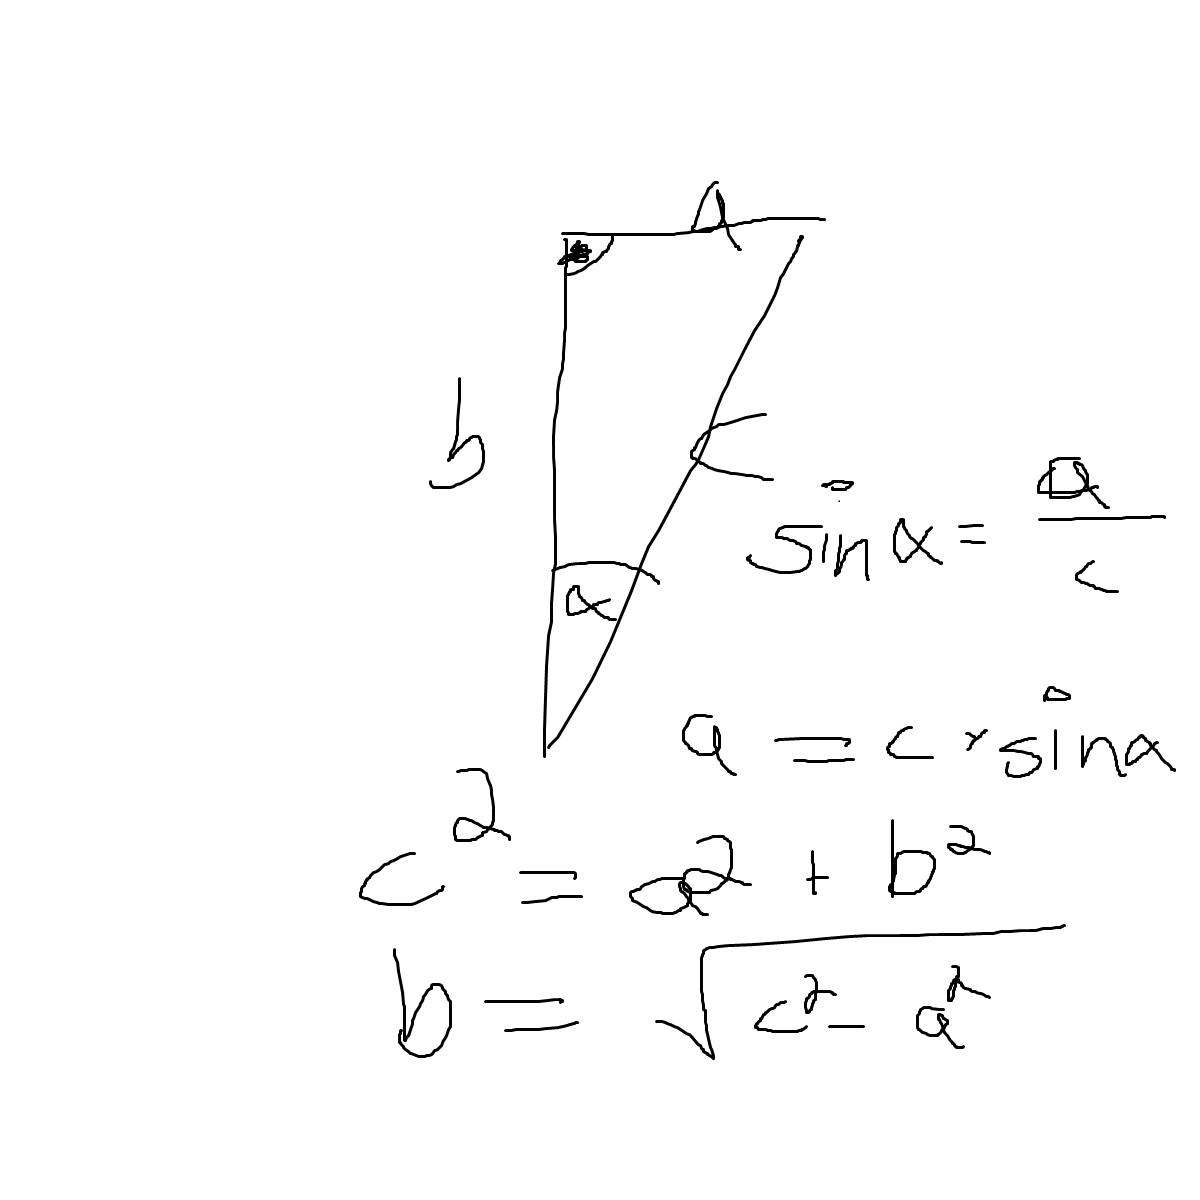 a
b
c
α
sin α = a / c
a = c · sin α
c² = a² + b²
b = √(c² - a²)